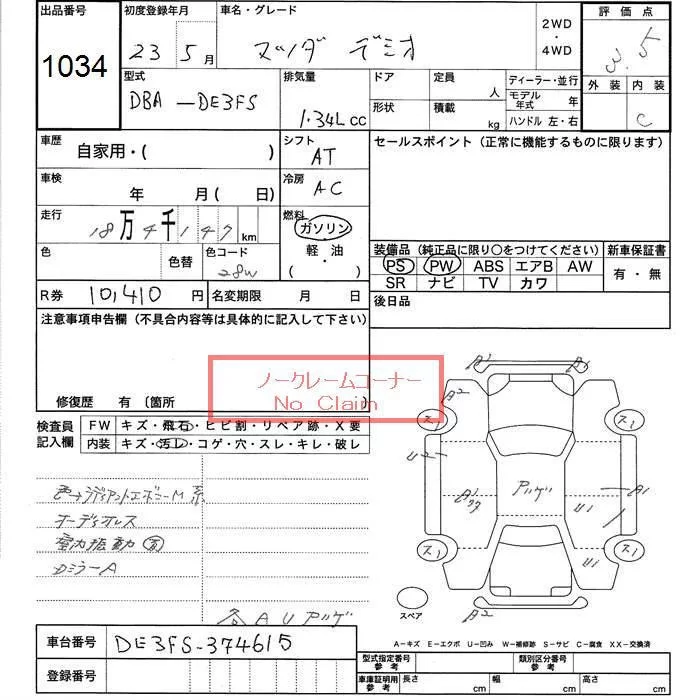 出品番号
1034
初度登録年月
23 5月
車名・グレード
マツダ デミオ
2WD
・
4WD
評価点
3.5
外装 内装
C
型式
DBA-DE3FS
排気量
1.34L cc
ドア
形状
定員 人
積載 kg
ディーラー・並行
モデル年式 年
ハンドル 左・右
車歴
自家用・( )
シフト
AT
セールスポイント(正常に機能するものに限ります)
車検
年 月( 日)
冷房
AC
走行
18万4千147km
燃料
ガソリン
軽・油
( ・ )
色
色替
色コード
28W
装備品(純正品に限り○をつけてください)
新車保証書
PS PW ABS エアB AW
SR ナビ TV カワ
有・無
R券 10,410 円
名変期限 月 日
後日品
注意事項申告欄(不具合内容等は具体的に記入して下さい)
ノークレームコーナー
No Claim
修復歴 有 〔箇所
検査員記入欄
FW キズ・飛石・ヒビ割・リペア跡・X要
内装 キズ・汚レ・コゲ・穴・スレ・キレ・破レ
色→ラディアントエボニーM系
オーディオレス
室内振動 有
DミラーA
各AUアゲ
A1 A1
A2
ス1 ス1
U2
A1
アゲ
A1
U1
U1
ス1 ス1
スペア
A2
A-キズ E-エクボ U-凹み W-補修跡 S-サビ C-腐食 XX-交換済
車台番号 DE3FS-374615
登録番号
型式指定番号 参考
類別区分番号 参考
車庫証明用 参考
長さ cm 幅 cm 高さ cm